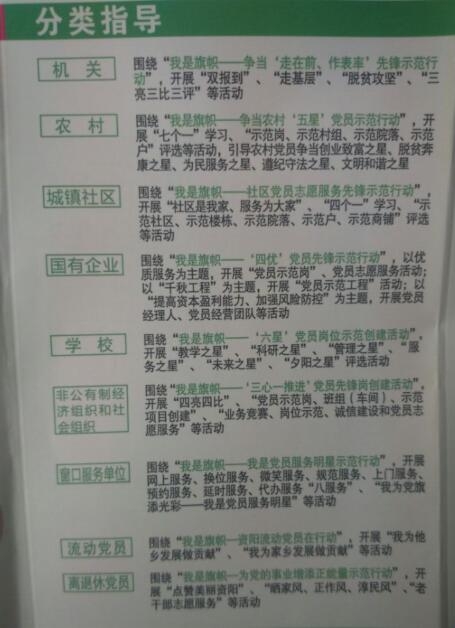 分类指导
机关
围绕“我是旗帜——争当‘走在前、作表率’先锋示范行
动”，开展“双报到”、“走基层”、“脱贫攻坚”、“三
亮三比三评”等活动
农村
围绕“我是旗帜——争当农村‘五星’党员示范行动”，开
展“七个一”学习、“示范岗、示范村组、示范院落、示范
户”评选等活动，引导农村党员争当创业致富之星、脱贫奔
康之星、为民服务之星、遵纪守法之星、文明和谐之星
城镇社区
围绕“我是旗帜——社区党员志愿服务先锋示范行动”，
开展“社区是我家、服务为大家”、“四个一”学习、“示
范社区、示范楼栋、示范院落、示范户、示范商铺”评选
等活动
国有企业
围绕“我是旗帜——‘四优’党员先锋示范行动”，以优
质服务为主题，开展“党员示范岗”、党员志愿服务活动；
以“千秋工程”为主题，开展“党员示范工程”活动；以
“提高资本盈利能力、加强风险防控”为主题，开展党员
经理人、党员经营团队等活动
学校
围绕“我是旗帜——‘六星’党员岗位示范创建活动”，
开展“教学之星”、“科研之星”、“管理之星”、“服
务之星”、“未来之星”、“夕阳之星”评选活动
非公有制经
济组织和社
会组织
围绕“我是旗帜——‘三心一推进’党员先锋岗创建活动”，
开展“四亮四比”、“党员示范岗、班组（车间）、示范
项目创建”、“业务竞赛、岗位示范、诚信建设和党员志
愿服务”等活动
窗口服务单位
围绕“我是旗帜——我是党员服务明星示范行动”，开展
网上服务、换位服务、微笑服务、规范服务、上门服务、
预约服务、延时服务、代办服务“八服务”、“我为党旗
添光彩——我是党员服务明星”等活动
流动党员
围绕“我是旗帜—资阳流动党员在行动”，开展“我为他
乡发展做贡献”、“我为家乡发展做贡献”等活动
离退休党员
围绕“我是旗帜—为党的事业增添正能量示范行动”，开
展“点赞美丽资阳”、“晒家风、正作风、淳民风”、“老
干部志愿服务”等活动